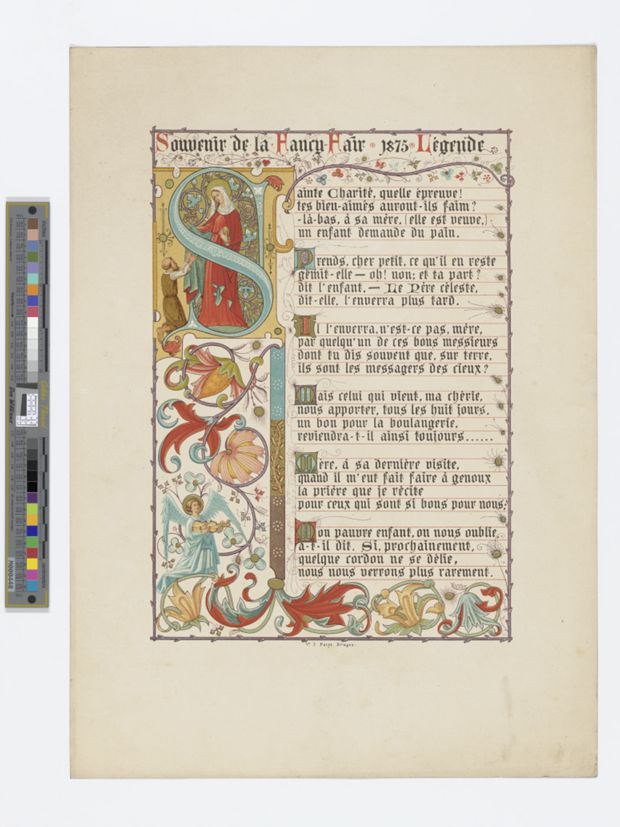 Souvenir de la Fancy Fair 1875 Légende
Sainte Charité, quelle épreuve!
tes bien-aimés auront-ils faim?
-là-bas, à sa mère, (elle est veuve,)-
un enfant demande du pain.
Prends, cher petit, ce qu'il en reste
gémit-elle — oh! non; et ta part?
dit l'enfant, — Le Père céleste,
dit-elle, l'enverra plus tard.
Il l'enverra, n'est-ce pas, mère,
par quelqu'un de ces bons messieurs
dont tu dis souvent que, sur terre,
ils sont les messagers des cieux?
Mais celui qui vient, ma chérie,
nous apporter, tous les huit jours,
un bon pour la boulangerie,
reviendra-t-il ainsi toujours......
Mère, à sa dernière visite,
quand il m'eut fait faire à genoux
la prière que je récite
pour ceux qui sont si bons pour nous;
Mon pauvre enfant, on nous oublie,
a-t-il dit. Si, prochainement,
quelque cordon ne se délie,
nous nous verrons plus rarement.
Bruges.